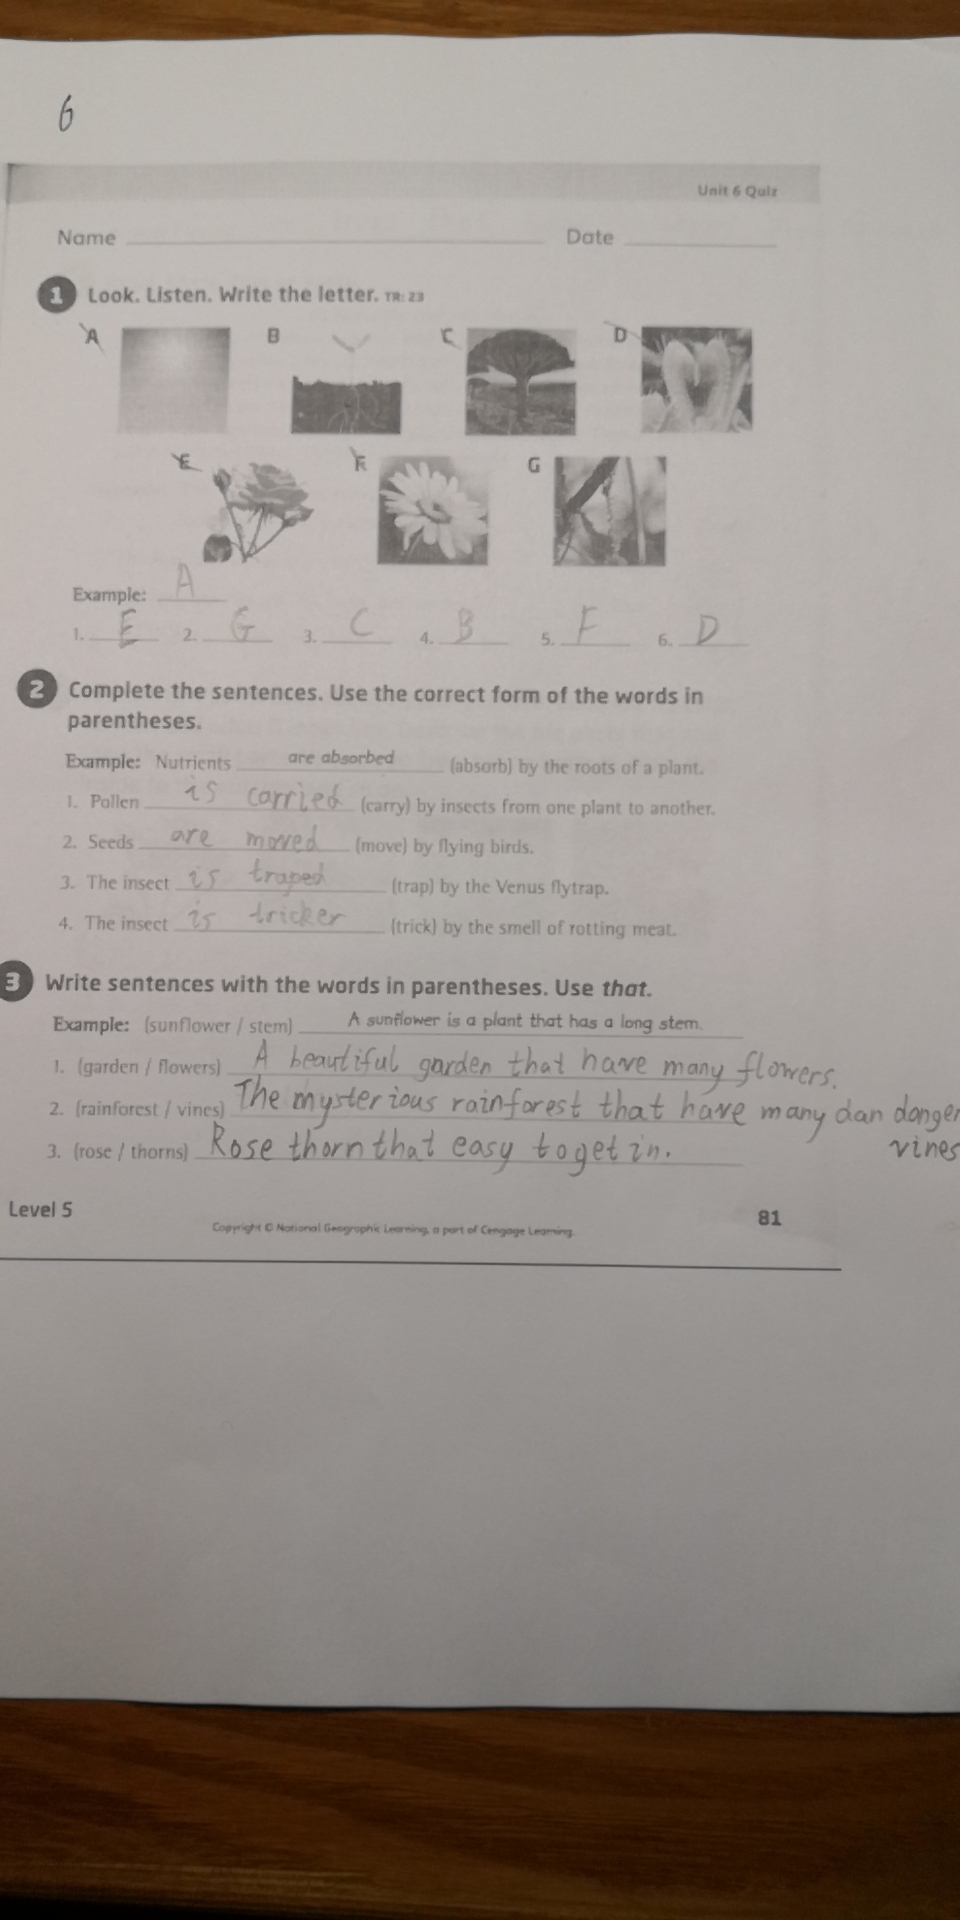 6
Unit 6 Quiz
Name Date
1 Look. Listen. Write the letter. TR: 23
A B C D
E F G
Example: A
1. E 2. G 3. C 4. B 5. F 6. D
2 Complete the sentences. Use the correct form of the words in
parentheses.
Example: Nutrients are absorbed (absorb) by the roots of a plant.
1. Pollen is carried (carry) by insects from one plant to another.
2. Seeds are moved (move) by flying birds.
3. The insect is traped (trap) by the Venus flytrap.
4. The insect is tricker (trick) by the smell of rotting meat.
3 Write sentences with the words in parentheses. Use that.
Example: (sunflower / stem) A sunflower is a plant that has a long stem.
1. (garden / flowers) A beautiful garden that have many flowers.
2. (rainforest / vines) The mysterious rainforest that have many dan danger
vines
3. (rose / thorns) Rose thorn that easy to get in.
Level 5
Copyright © National Geographic Learning, a part of Cengage Learning
81